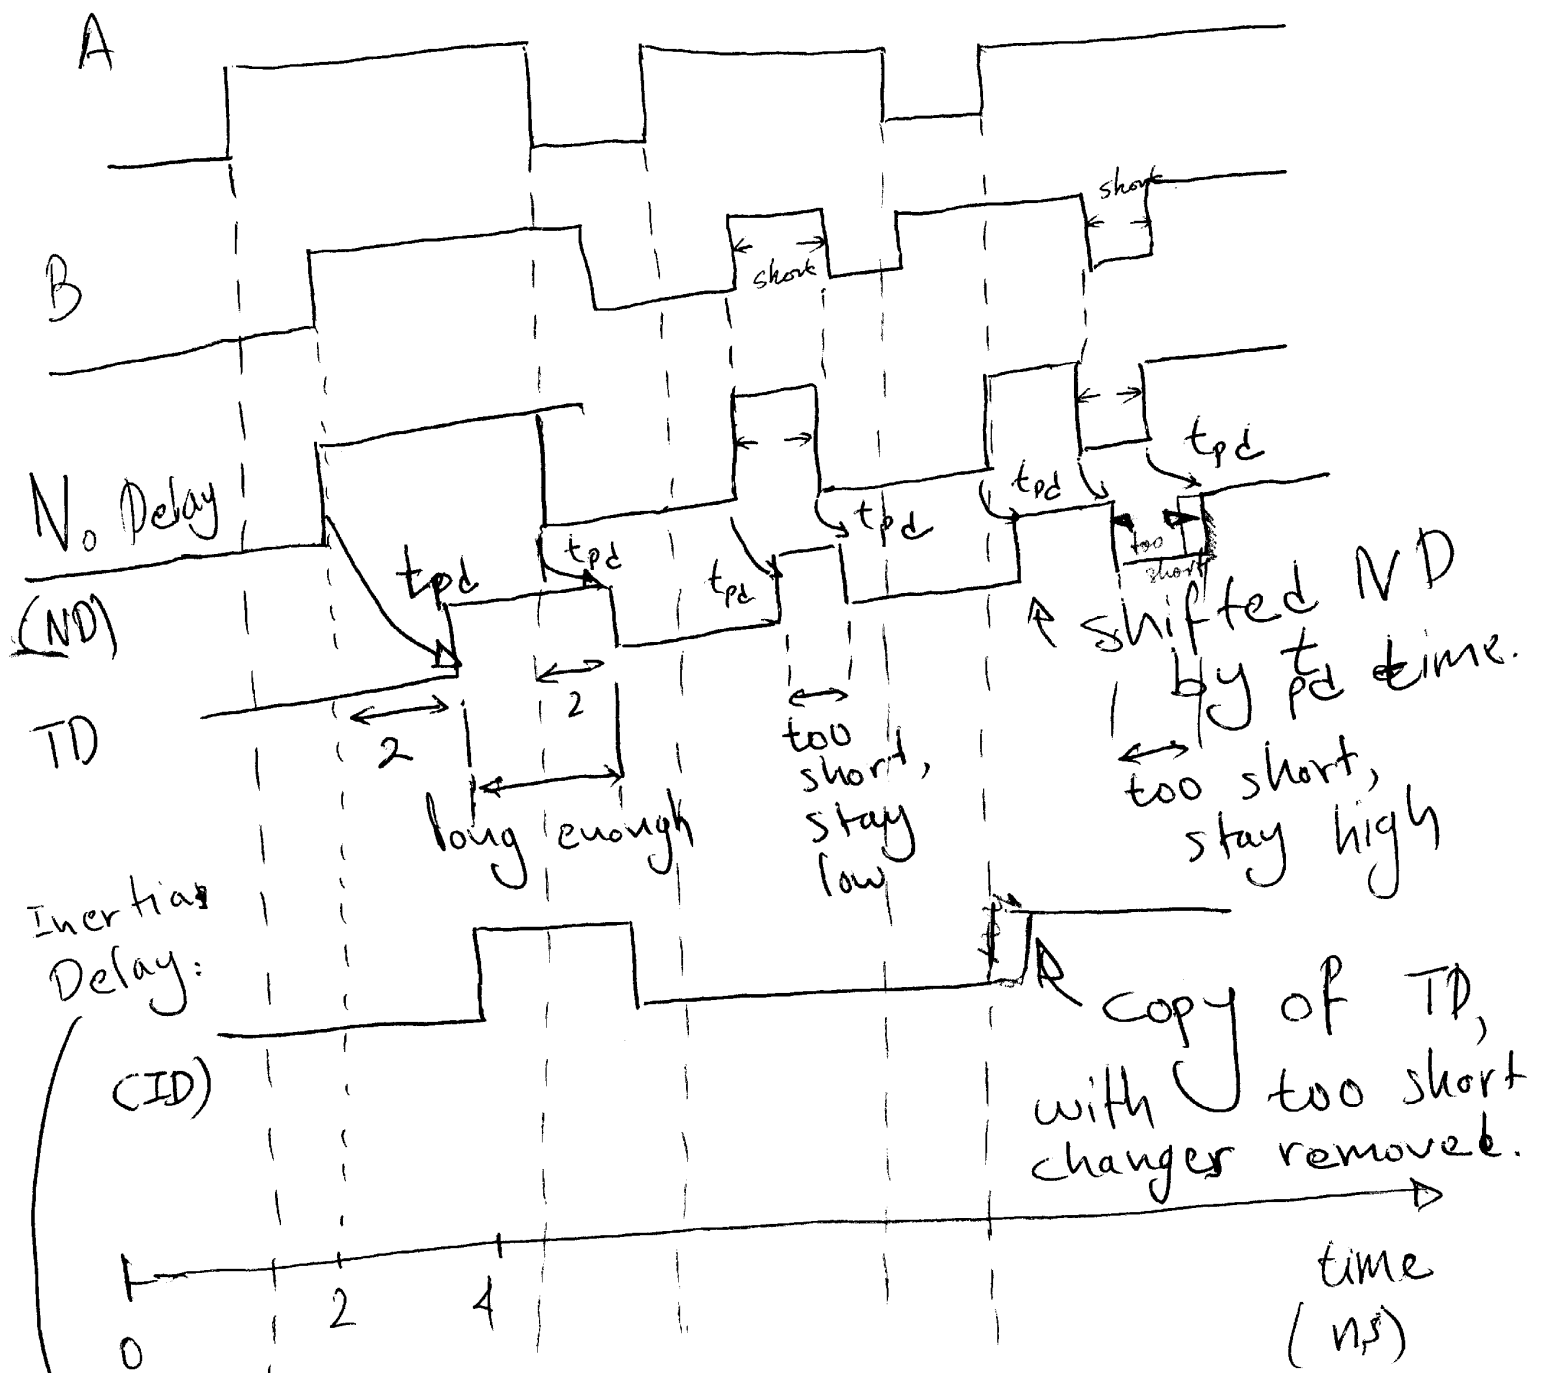 A
short
B
short
No Delay
tpd
(ND)
tpd
tpd
tpd
tpd
tpd
too
short
shifted ND
by tpd time.
TD
2
2
long enough
too
short,
stay
low
too short,
stay high
Inertial
Delay:
(ID)
copy of TD,
with too short
changes removed.
0
2
4
time
(ns)